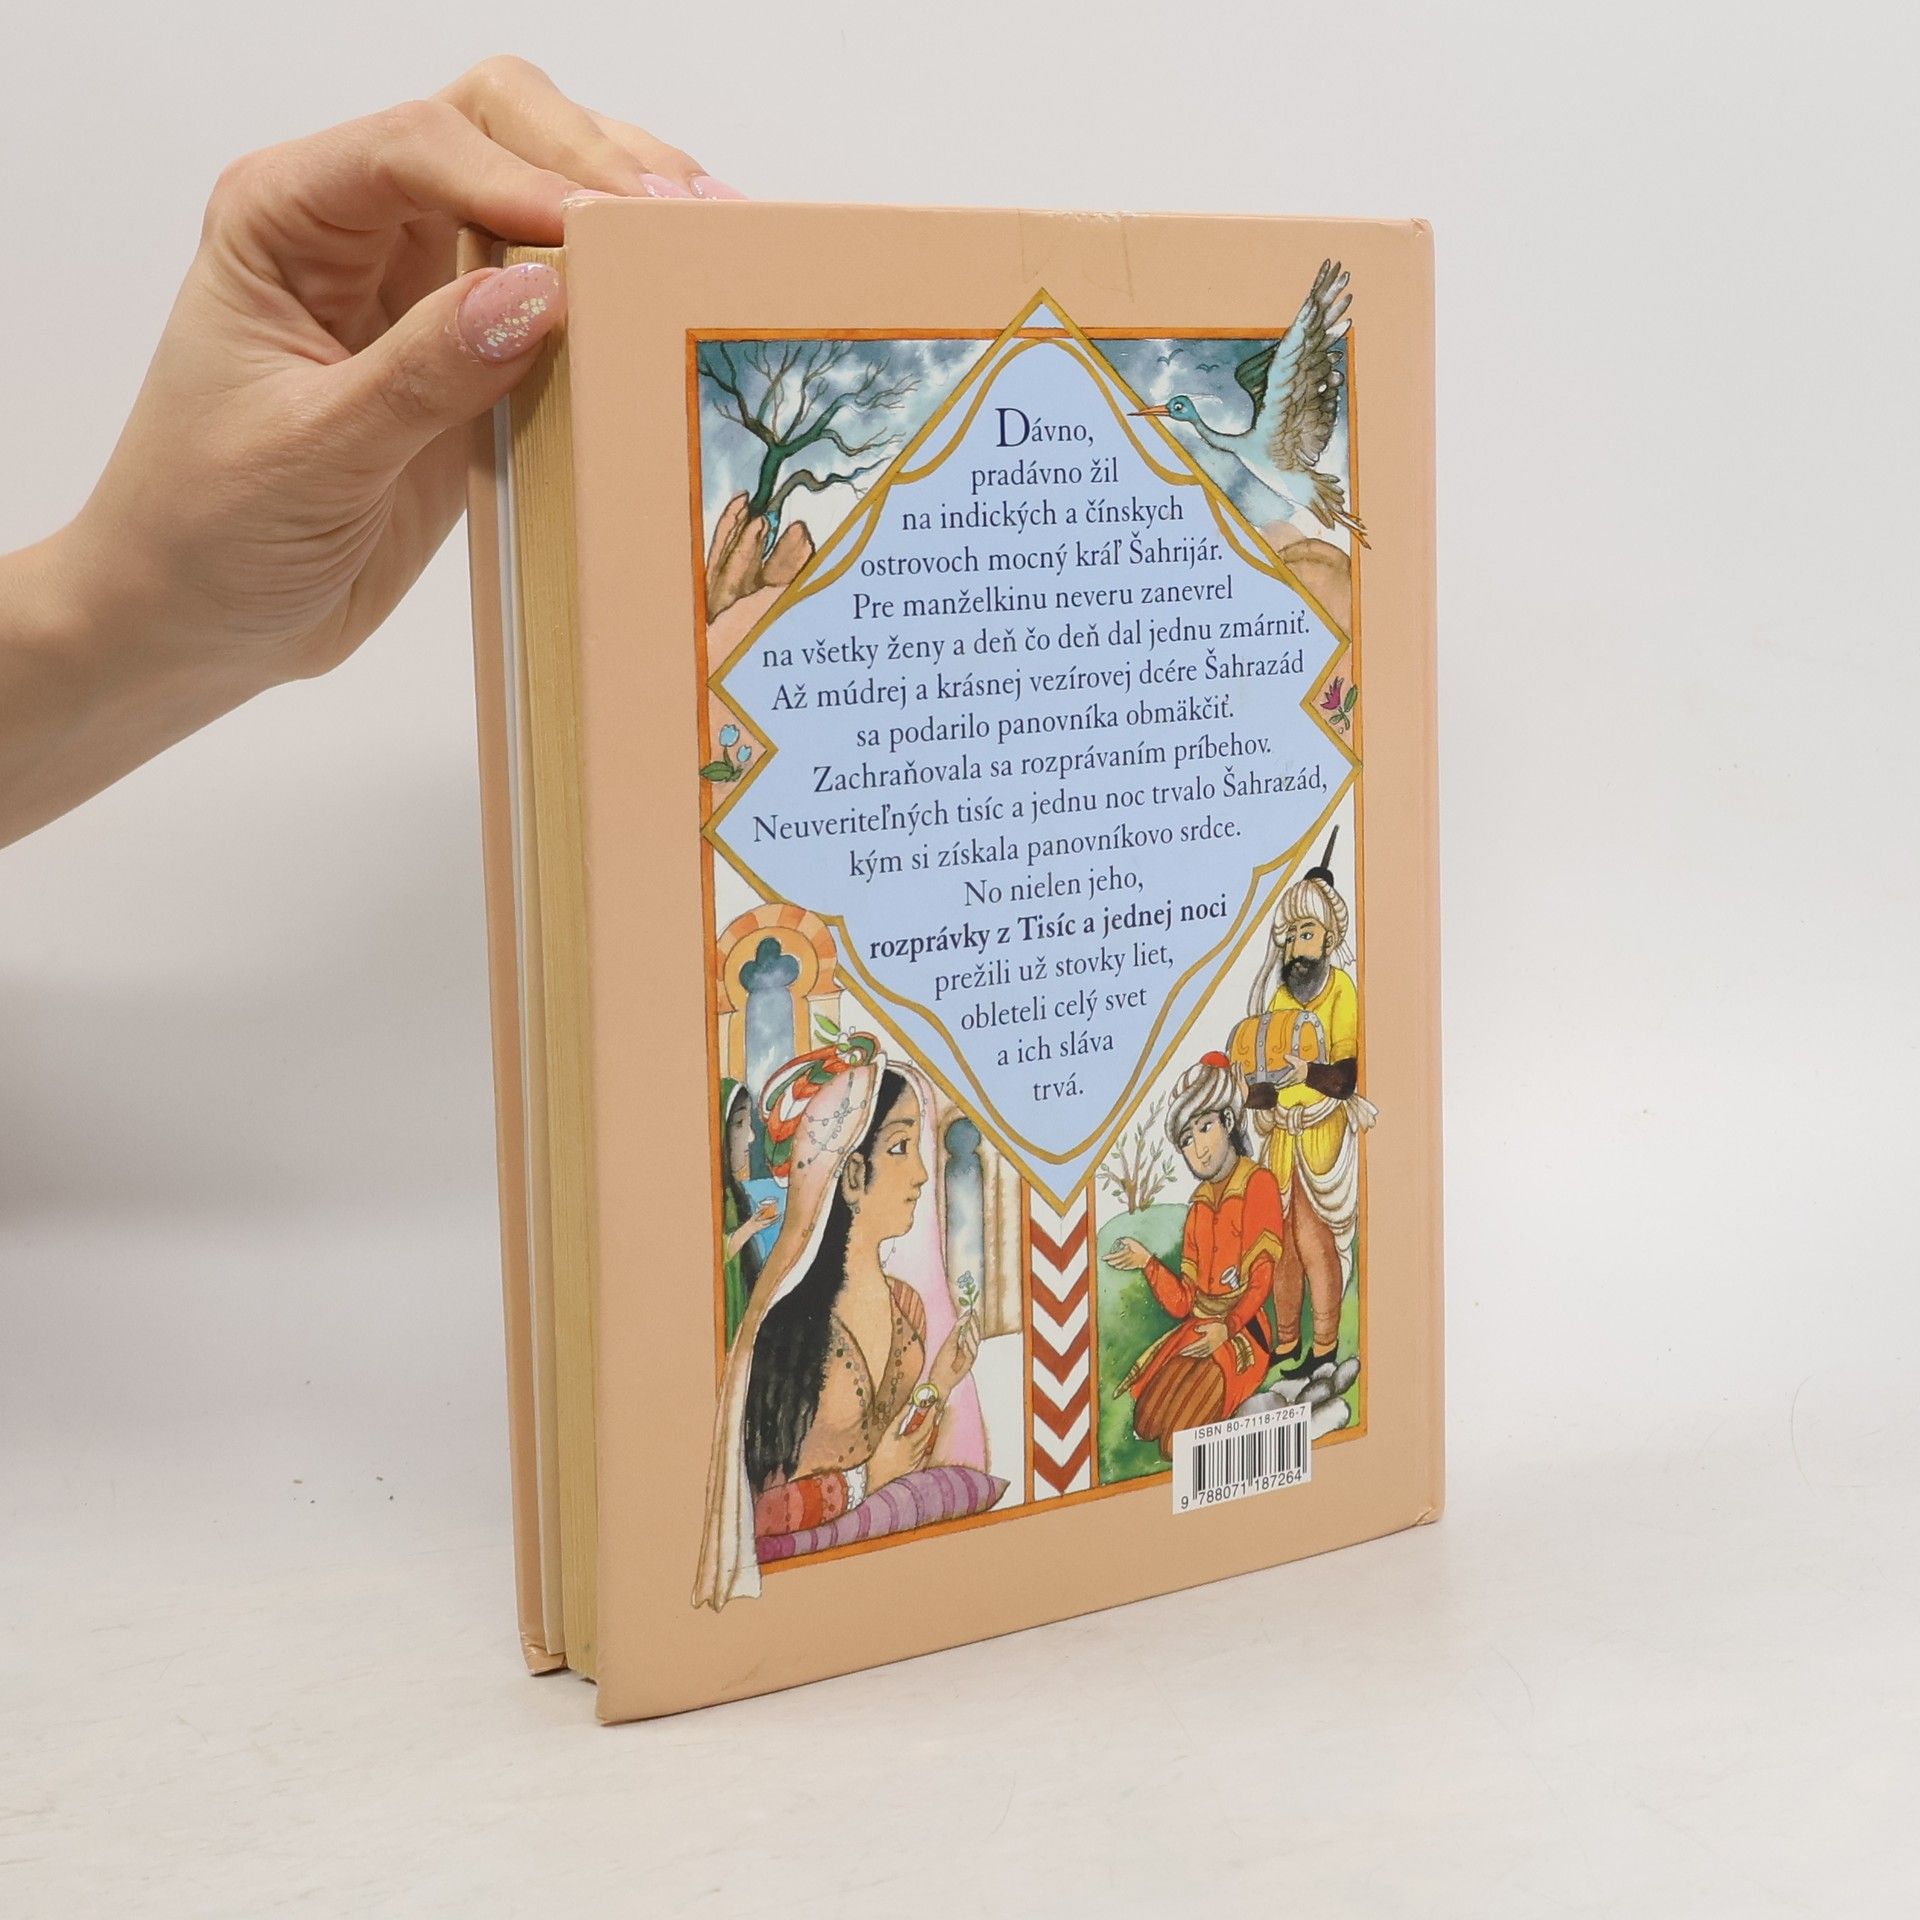 Dávno,
pradávno žil
na indických a čínskych
ostrovoch mocný kráľ Šahrijár.
Pre manželkinu neveru zanevrel
na všetky ženy a deň čo deň dal jednu zmárniť.
Až múdrej a krásnej vezírovej dcére Šahrazád
sa podarilo panovníka obmäkčiť.
Zachraňovala sa rozprávaním príbehov.
Neuveriteľných tisíc a jednu noc trvalo Šahrazád,
kým si získala panovníkovo srdce.
No nielen jeho,
rozprávky z Tisíc a jednej noci
prežili už stovky liet,
obleteli celý svet
a ich sláva
trvá.
ISBN 80-7118-726-7
9 788071 187264